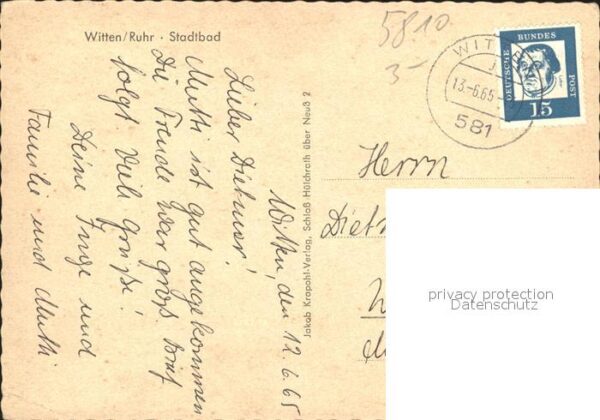 Witten/Ruhr · Stadtbad
5810
3-
Witten, den 12.6.65
Lieber Dietmar!
Mutti ist gut angekommen
Die Freude war groß. Brief
folgt. Viele Grüße!
Deine Inge und
Familie und Mutti
Jakob Krapohl-Verlag, Schloß Hülchrath über Neuß 2
WITT
13.-6.65
581
DEUTSCHE BUNDES POST
15
Herrn
Diet
privacy protection
Datenschutz